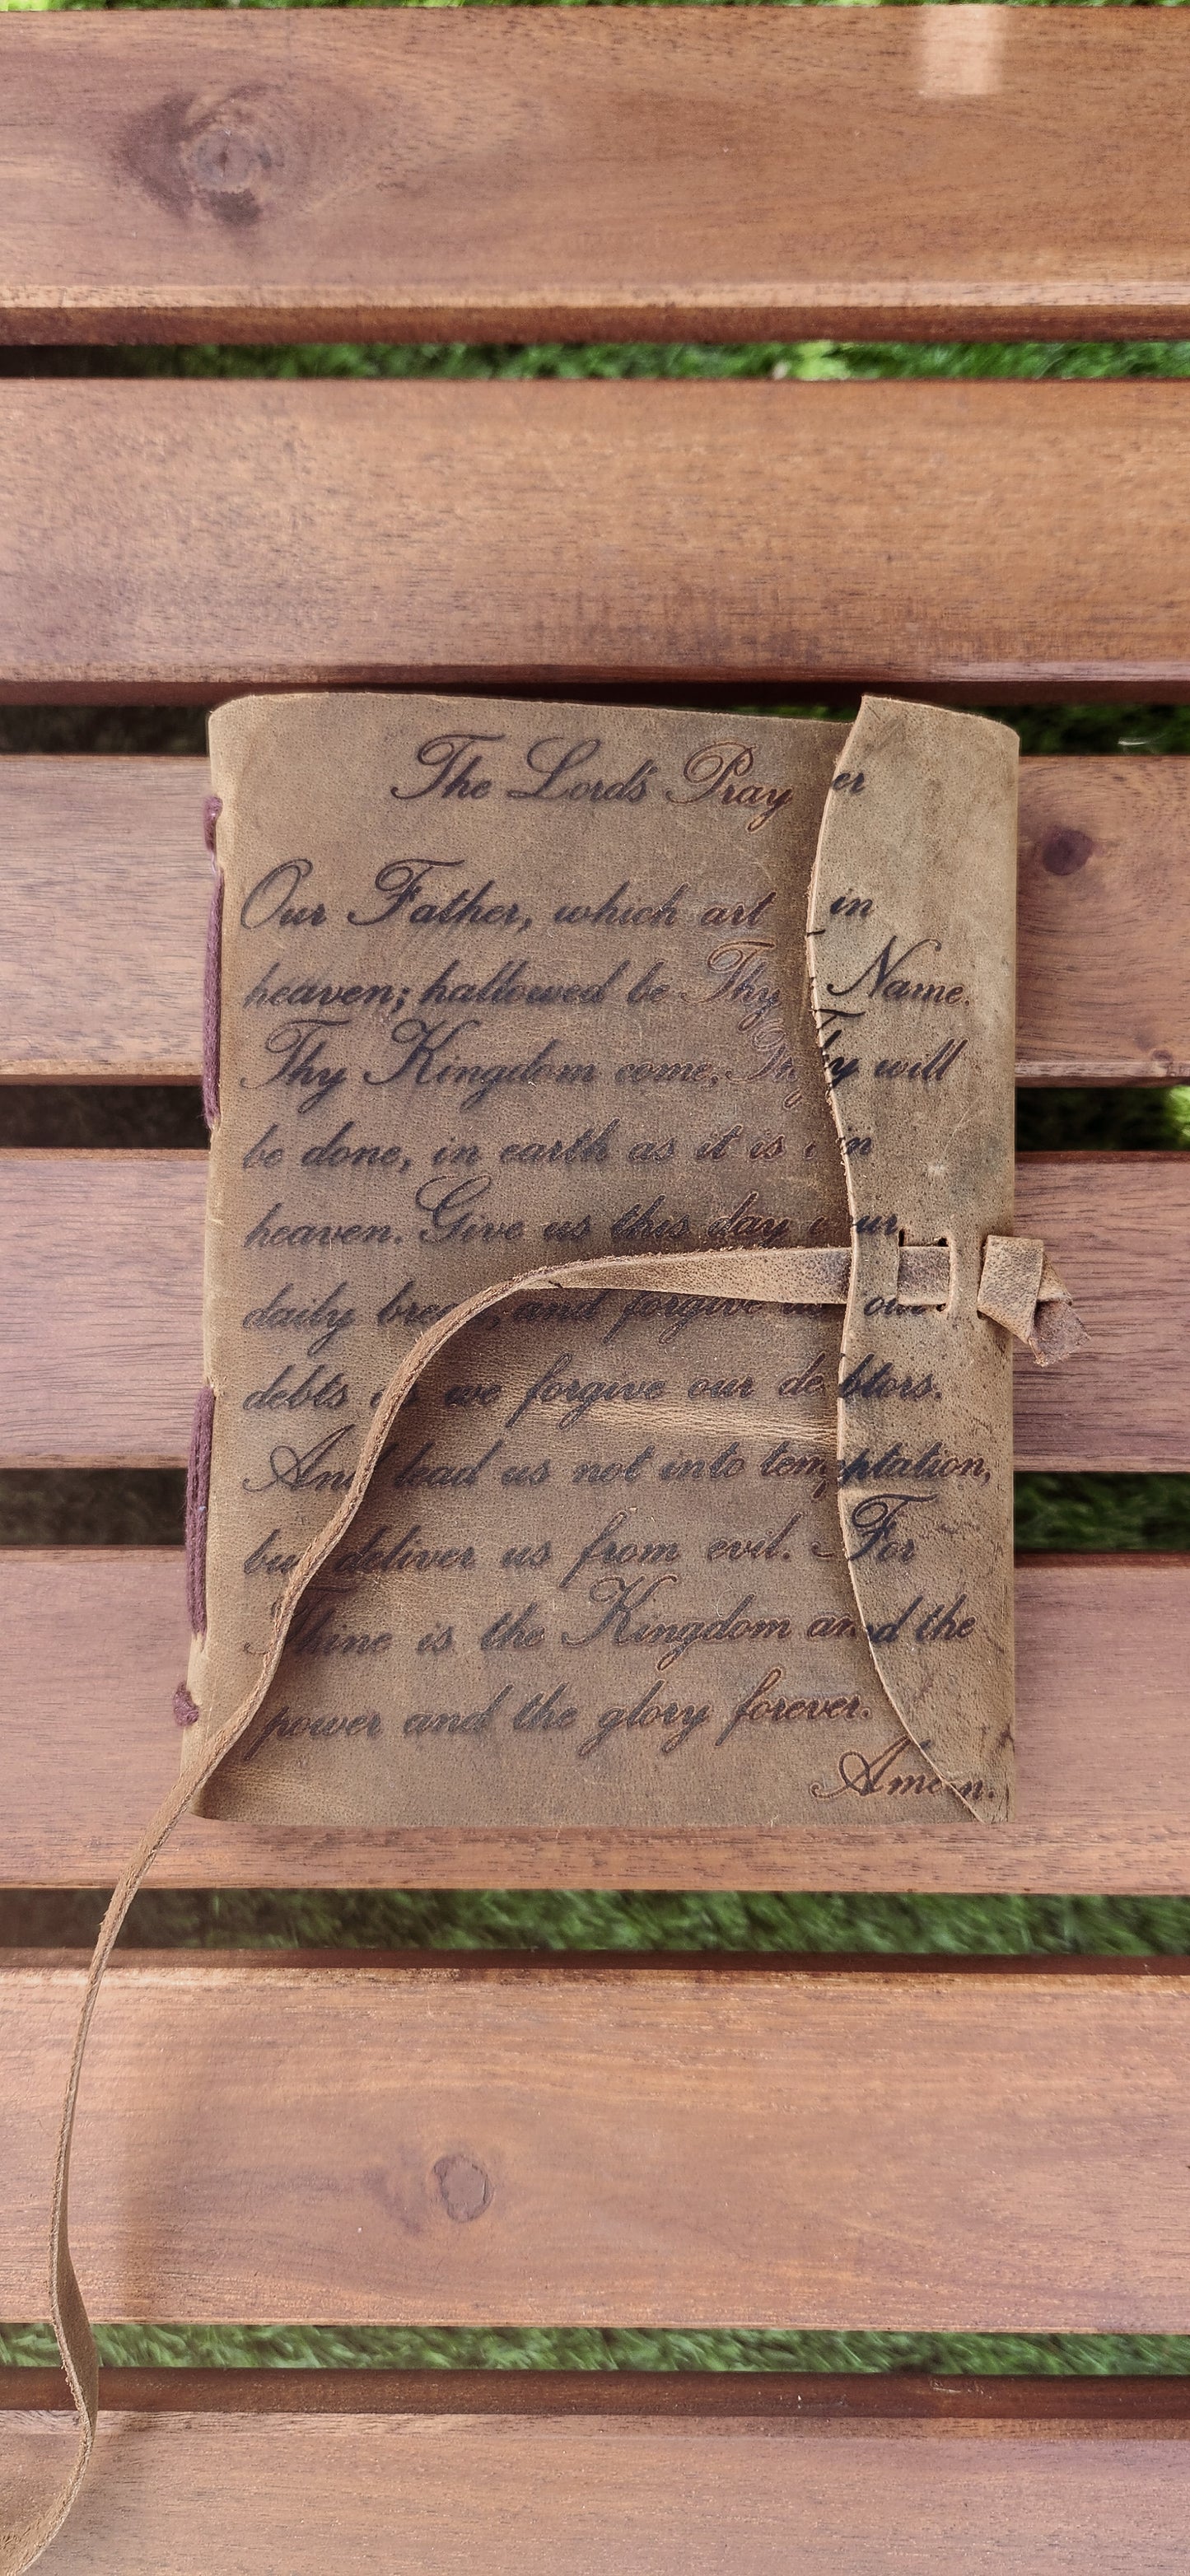 The Lord's Prayer
Our Father, which art in
heaven; hallowed be Thy Name.
Thy Kingdom come, Thy will
be done, in earth as it is in
heaven. Give us this day our
daily bread, and forgive us our
debts as we forgive our debtors.
And lead us not into temptation,
but deliver us from evil. For
Thine is the Kingdom and the
power and the glory forever.
Amen.